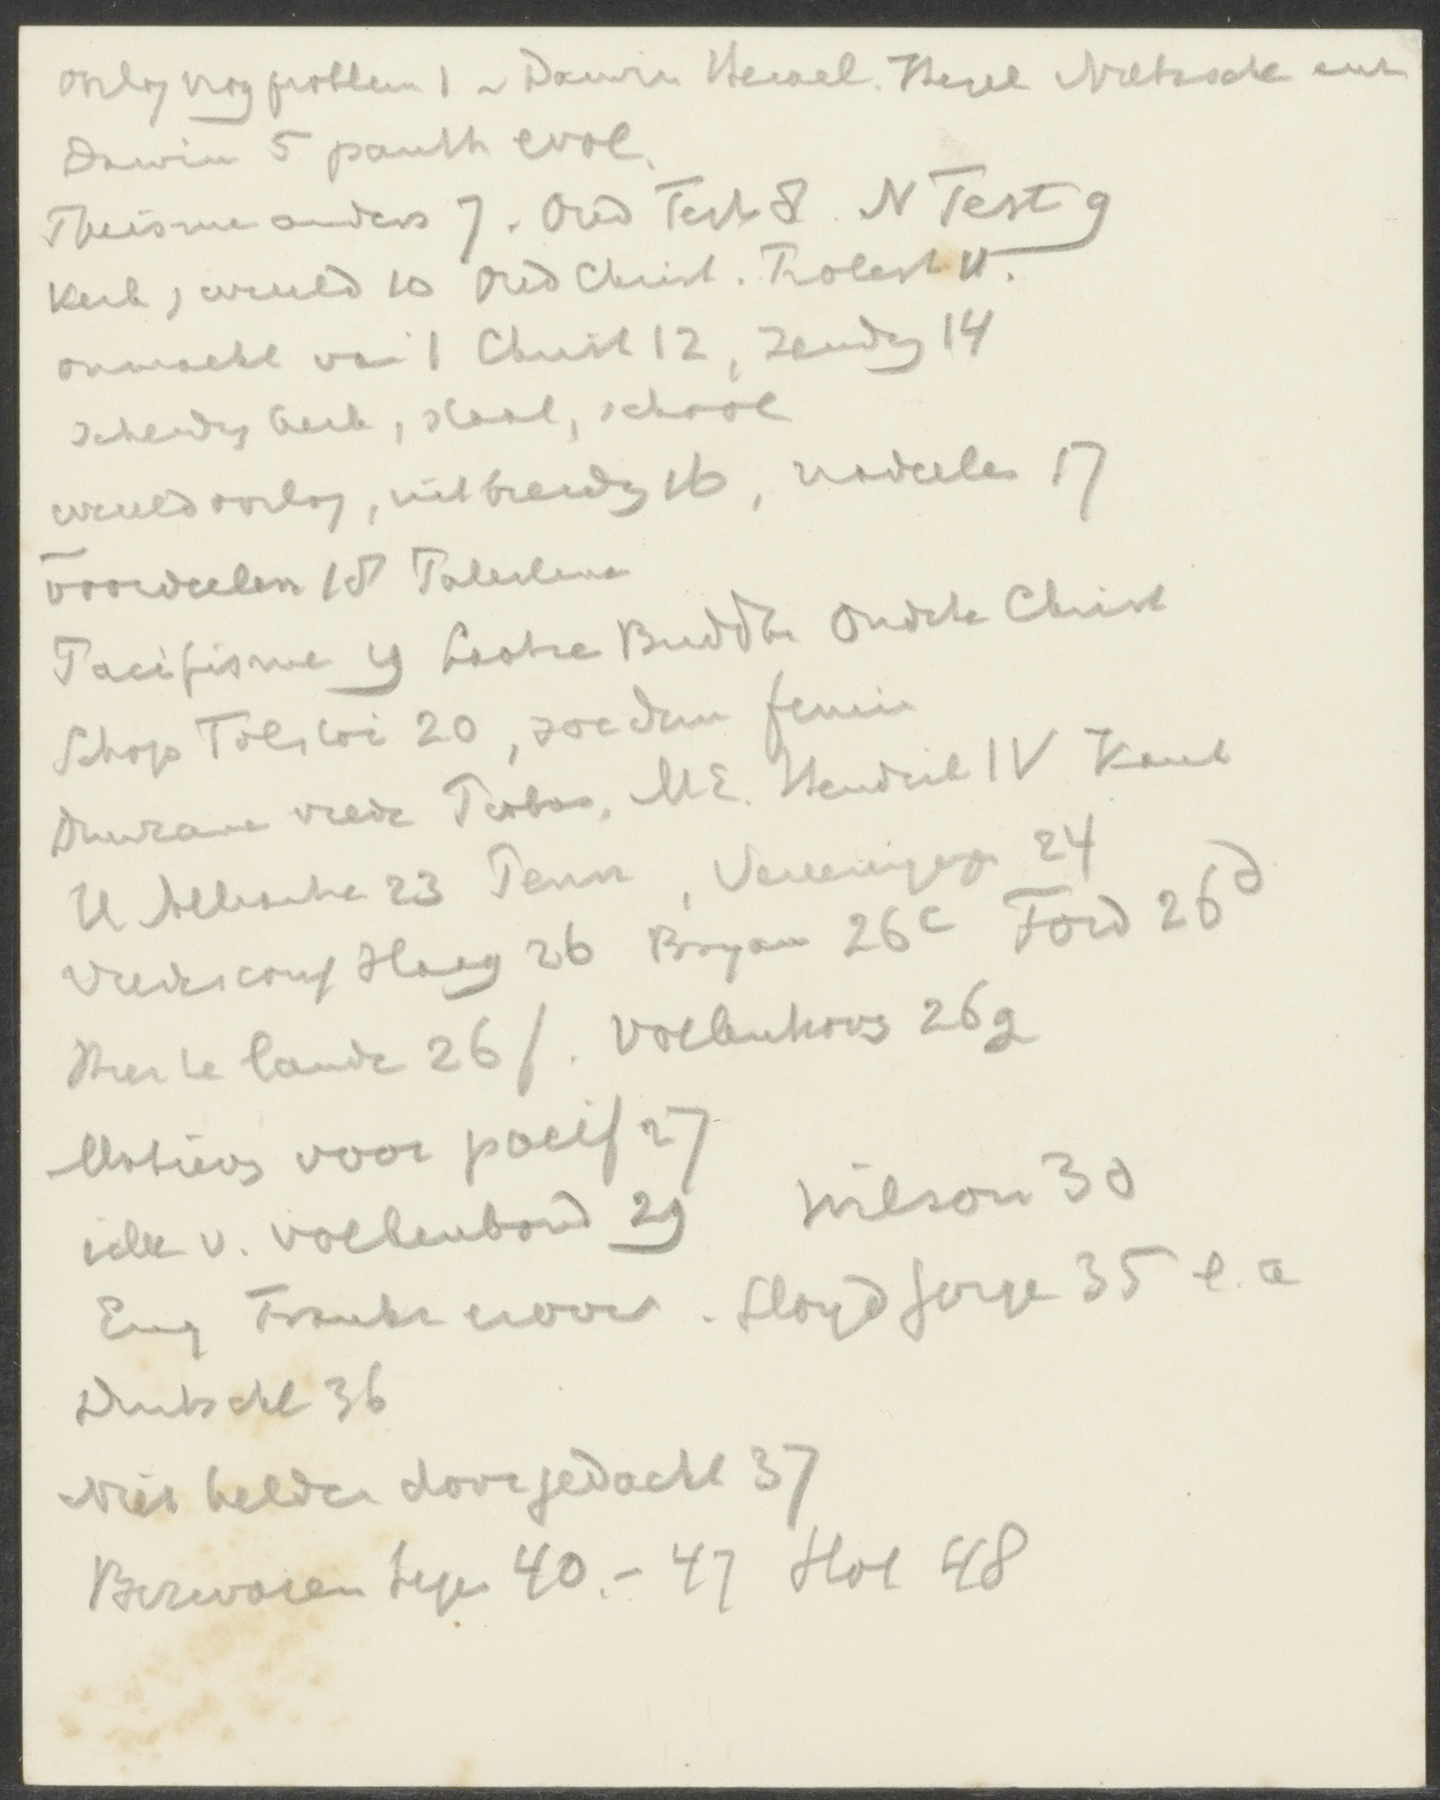 Oorlog nog probleem 1 ~ Darwin Heracl. Hegel Nietzsche
Darwin 5 panth evol.
Theisme anders 7. Oud Test 8. N Test 9
Kerk, wereld 10 Oud Christ. Protest 11.
onmacht van 't Christ 12, zending 14
scheiding kerk, staat, school
wereldoorlog, uitbreidg 16, nadeelen 17
voordeelen 18 Palestina
Pacifisme 19 Laotze Buddh. Oudste Christ
Schop Tolstoi 20, socdem femin
Duurzame vrede ME. Hendrik IV Kant
H Alliantie 23 Penn, Vereenigingn 24
Vredesconf Haag 26 Bryan 26c Ford 26d
Hier te lande 26f. Vollenhoven 26g
Motieven voor pacif 27
idee v. volkenbond 29 Wilson 30
Eng Frankr. Lloyd George 35 e.a
Duitschl 36
Niet helder doorgedacht 37
Bezwaren tegen 40.- 47 Hol 48